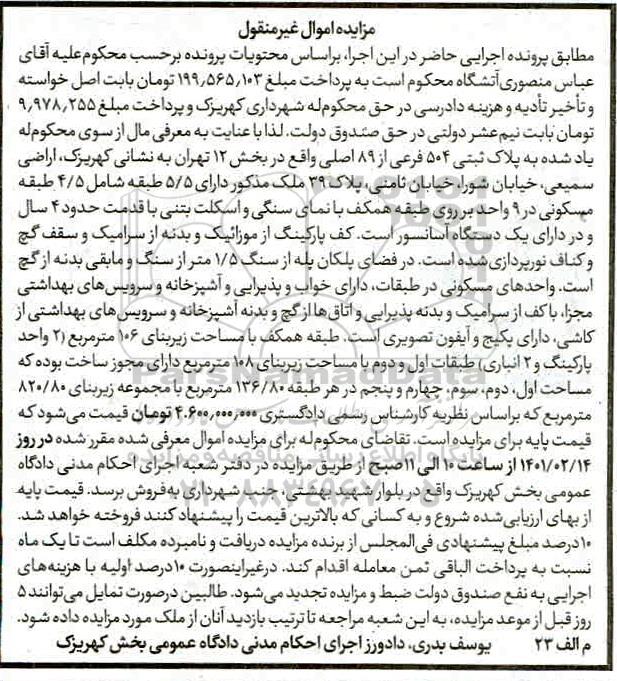 مزایده اموال غیرمنقول
مطابق پرونده اجرایی حاضر در این اجرا، براساس محتویات پرونده برحسب محکوم‌علیه آقای
عباس منصوری‌آتشگاه محکوم است به پرداخت مبلغ ۱۹۹,۵۶۵,۱۰۳ تومان بابت اصل خواسته
و تأخیر تأدیه و هزینه دادرسی در حق محکوم‌له شهرداری کهریزک و پرداخت مبلغ ۹,۹۷۸,۲۵۵
تومان بابت نیم‌عشر دولتی در حق صندوق دولت. لذا با عنایت به معرفی مال از سوی محکوم‌له
یاد شده به پلاک ثبتی ۵۰۴ فرعی از ۸۹ اصلی واقع در بخش ۱۲ تهران به نشانی کهریزک، اراضی
سمیعی، خیابان شورا، خیابان ثامنی، پلاک ۳۹ ملک مذکور دارای ۵/۵ طبقه شامل ۴/۵ طبقه
مسکونی در ۹ واحد بر روی طبقه همکف با نمای سنگی و اسکلت بتنی با قدمت حدود ۴ سال
و در دارای یک دستگاه آسانسور است. کف پارکینگ از موزائیک و بدنه از سرامیک و سقف گچ
و کناف نورپردازی شده است. در فضای پلکان پله از سنگ ۱/۵ متر از سنگ و مابقی بدنه از گچ
است. واحدهای مسکونی در طبقات، دارای خواب و پذیرایی و آشپزخانه و سرویس‌های بهداشتی
مجزا، با کف از سرامیک و بدنه پذیرایی و اتاق‌ها از گچ و بدنه آشپزخانه و سرویس‌های بهداشتی از
کاشی، دارای پکیج و آیفون تصویری است. طبقه همکف با مساحت زیربنای ۱۰۶ مترمربع (۲ واحد
پارکینگ و ۲ انباری) طبقات اول و دوم با مساحت زیربنای ۱۰۸ مترمربع دارای مجوز ساخت بوده که
مساحت اول، دوم، سوم، چهارم و پنجم در هر طبقه ۱۳۶/۸۰ مترمربع با مجموعه زیربنای ۸۲۰/۸۰
مترمربع که براساس نظریه کارشناس رسمی دادگستری ۴.۶۰۰,۰۰۰,۰۰۰ تومان قیمت می‌شود که
قیمت پایه برای مزایده است. تقاضای محکوم‌له برای مزایده اموال معرفی شده مقرر شده در روز
۱۴۰۱/۰۲/۱۴ از ساعت ۱۰ الی ۱۱صبح از طریق مزایده در دفتر شعبه اجرای احکام مدنی دادگاه
عمومی بخش کهریزک واقع در بلوار شهید بهشتی، جنب شهرداری به‌فروش برسد. قیمت پایه
از بهای ارزیابی‌شده شروع و به کسانی که بالاترین قیمت را پیشنهاد کنند فروخته خواهد شد.
۱۰درصد مبلغ پیشنهادی فی‌المجلس از برنده مزایده دریافت و نامبرده مکلف است تا یک ماه
نسبت به پرداخت الباقی ثمن معامله اقدام کند. درغیراینصورت ۱۰درصد اولیه با هزینه‌های
اجرایی به نفع صندوق دولت ضبط و مزایده تجدید می‌شود. طالبین درصورت تمایل می‌توانند ۵
روز قبل از موعد مزایده، به این شعبه مراجعه تا ترتیب بازدید آنان از ملک مورد مزایده داده شود.
م الف ۲۳ یوسف بدری، دادورز اجرای احکام مدنی دادگاه عمومی بخش کهریزک